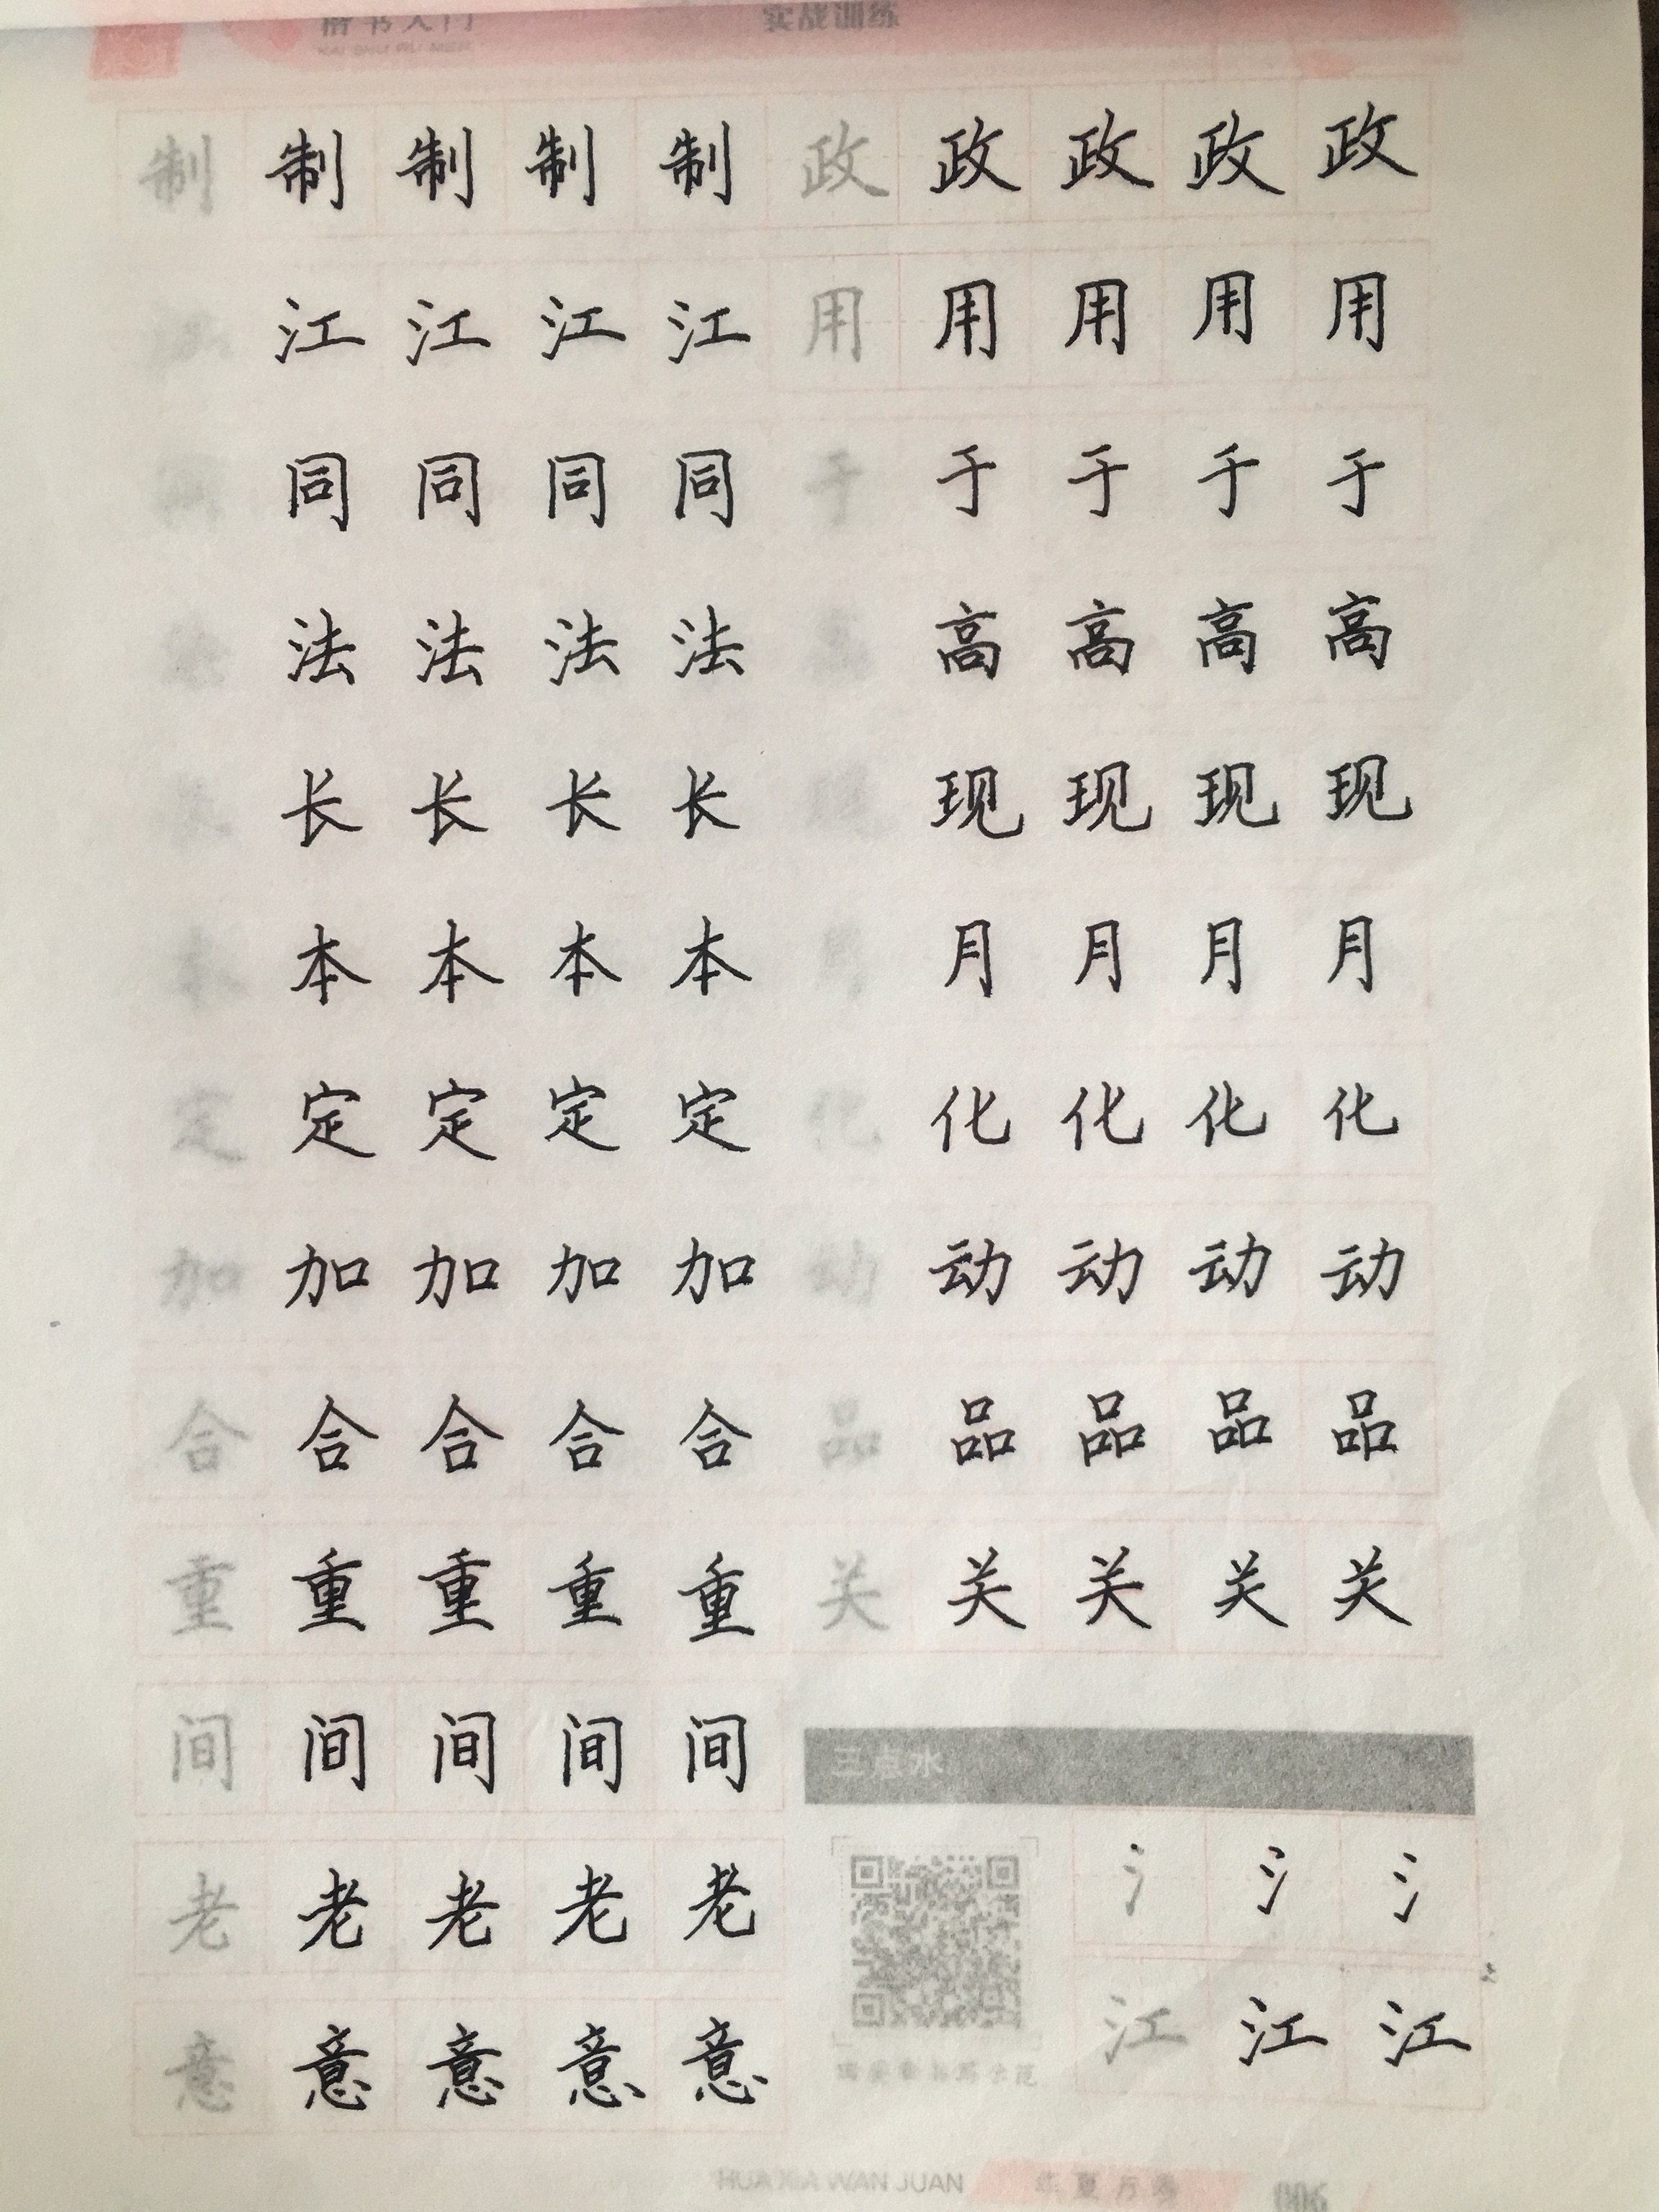 楷书入门 实战训练
KAI SHU RU MEN
制 制 制 制 制 政 政 政 政 政
江 江 江 江 用 用 用 用 用
同 同 同 同 于 于 于 于 于
法 法 法 法 高 高 高 高
长 长 长 长 现 现 现 现
本 本 本 本 本 月 月 月 月
定 定 定 定 定 化 化 化 化 化
加 加 加 加 加 动 动 动 动 动
合 合 合 合 合 品 品 品 品 品
重 重 重 重 重 关 关 关 关 关
间 间 间 间 间
三点水
老 老 老 老 老
氵 氵 氵
意 意 意 意 意
江 江 江
HUA XIA WAN JUAN 华夏万卷 006